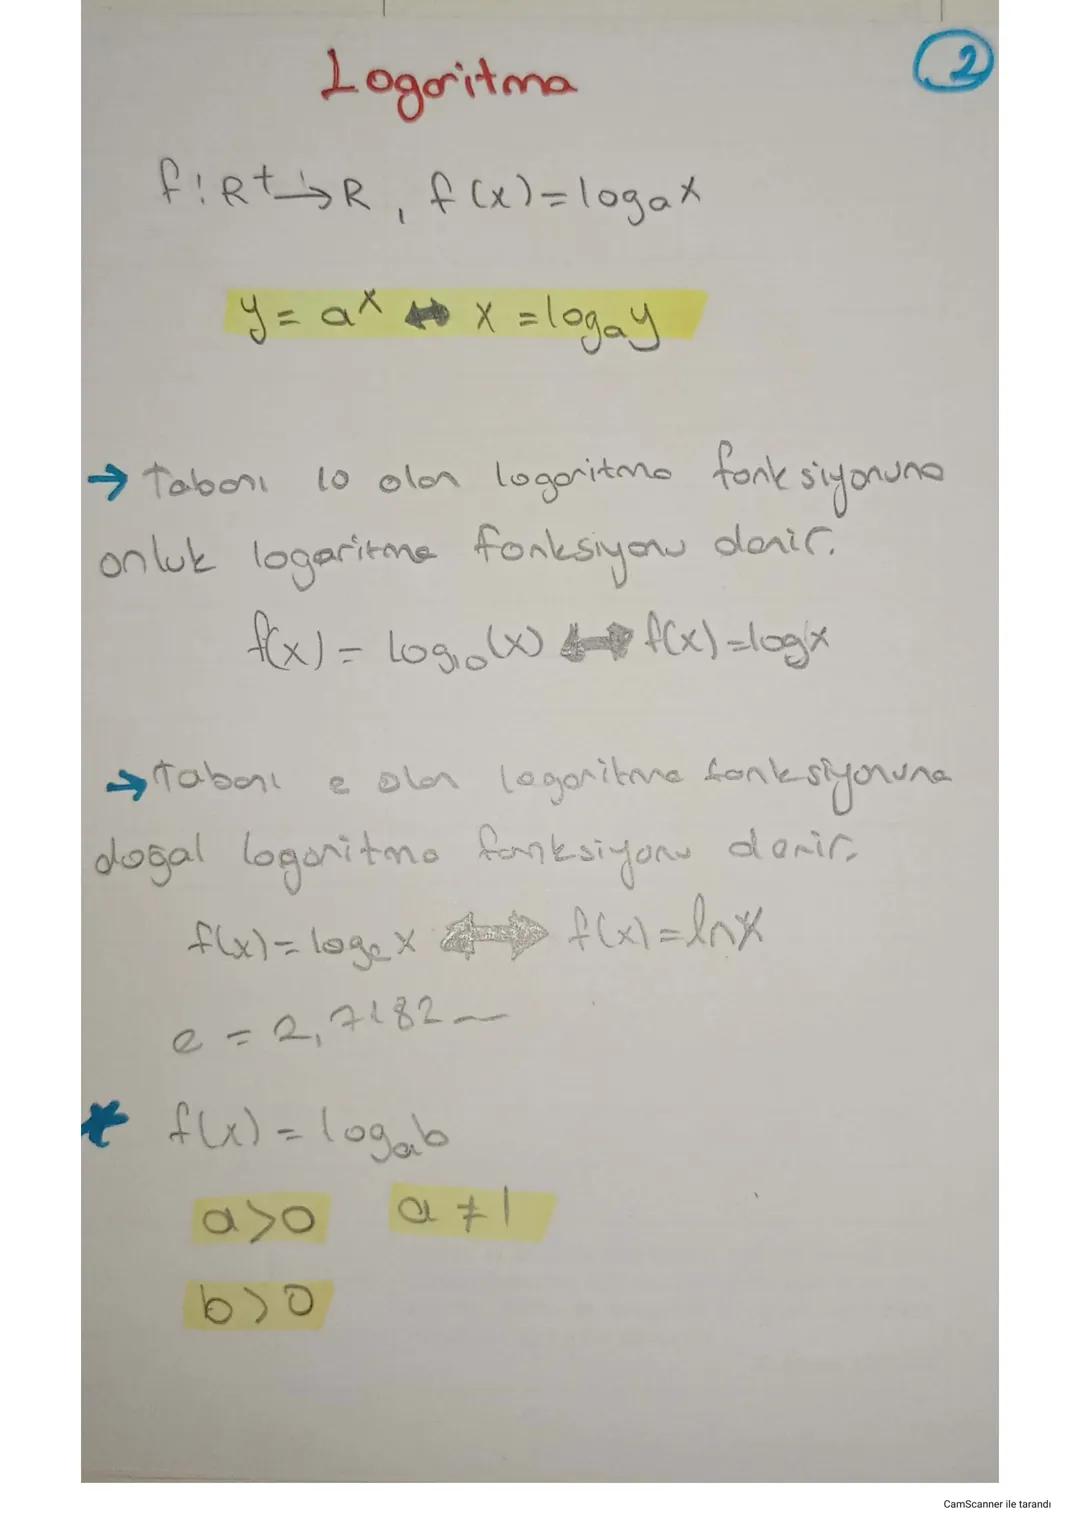 Logaritma
2
f: R⁺→R, f(x)=logₐx
y = aˣ ↔ x = logₐy
→ Tabanı 10 olan logaritma fonksiyonuna
onluk logaritma fonksiyonu denir.
f(x) = log₁₀(x) ↔ f(x)=logx
→ Tabanı e olan logaritma fonksiyonuna
doğal logaritma fonksiyonu denir.
f(x)=logₑx ↔ f(x)=lnx
e = 2,7182...
* f(x) = logₐb
a>0 a≠1
b>0
CamScanner ile tarandı